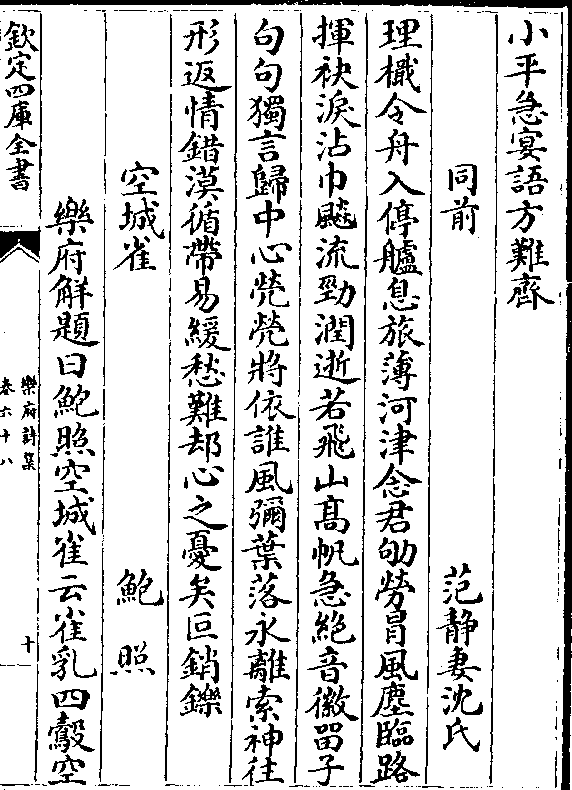 小平急宴語方難齊
同前　范靜妻沈氏
理檝令舟入停艫息旅薄河津念君劬勞冒風塵臨路
揮袂淚沾巾飈流勁潤逝若飛山髙帆急絶音徽畱子
句句獨言歸中心煢煢將依誰風彌葉落永離索神往
形返情錯漠循帶易緩愁難却心之憂矣叵銷鑠
空城雀　鮑照
樂府解題曰鮑照空城雀云雀乳四鷇空
欽定四庫全書
樂府詩集
卷六十八
十